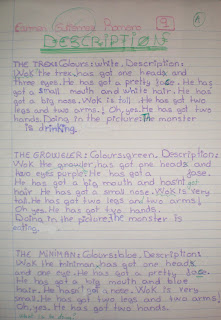 Carmen Gutiérrez Romero
A
DESCRIPTION
THE TREX: Colours: white. Description:
Wok the trex, has got one heads and
three eyes. He has got a pretty lose. He has
got a small mouth and white hair. He has
got a big nose. Wok is tall. He has got two
legs and two arms. Oh, yes. He has got two
hands. Doing in the picture: The monster
is drinking.
THE GROWELER: Colours: green. Description:
Wok the growler, has got one heads and
two eyes purple. He has got a lose.
He has got a big mouth and hasn't got
hair He has got a small nose. Wok is very
tall. He has got two legs and two arms!
Oh, yes. He has got two hands.
Doing in the picture: the monster is
eating.
THE MINIMAN: Colours: blue. Description:
Wok the miniman, has got one heads
and one eye. He has got a pretty lose.
He has got a big mouth and blue
hair. He hasn't got a nose. Wok is very
small. He has got two legs and two arms
Oh, yes. He has got two hands.